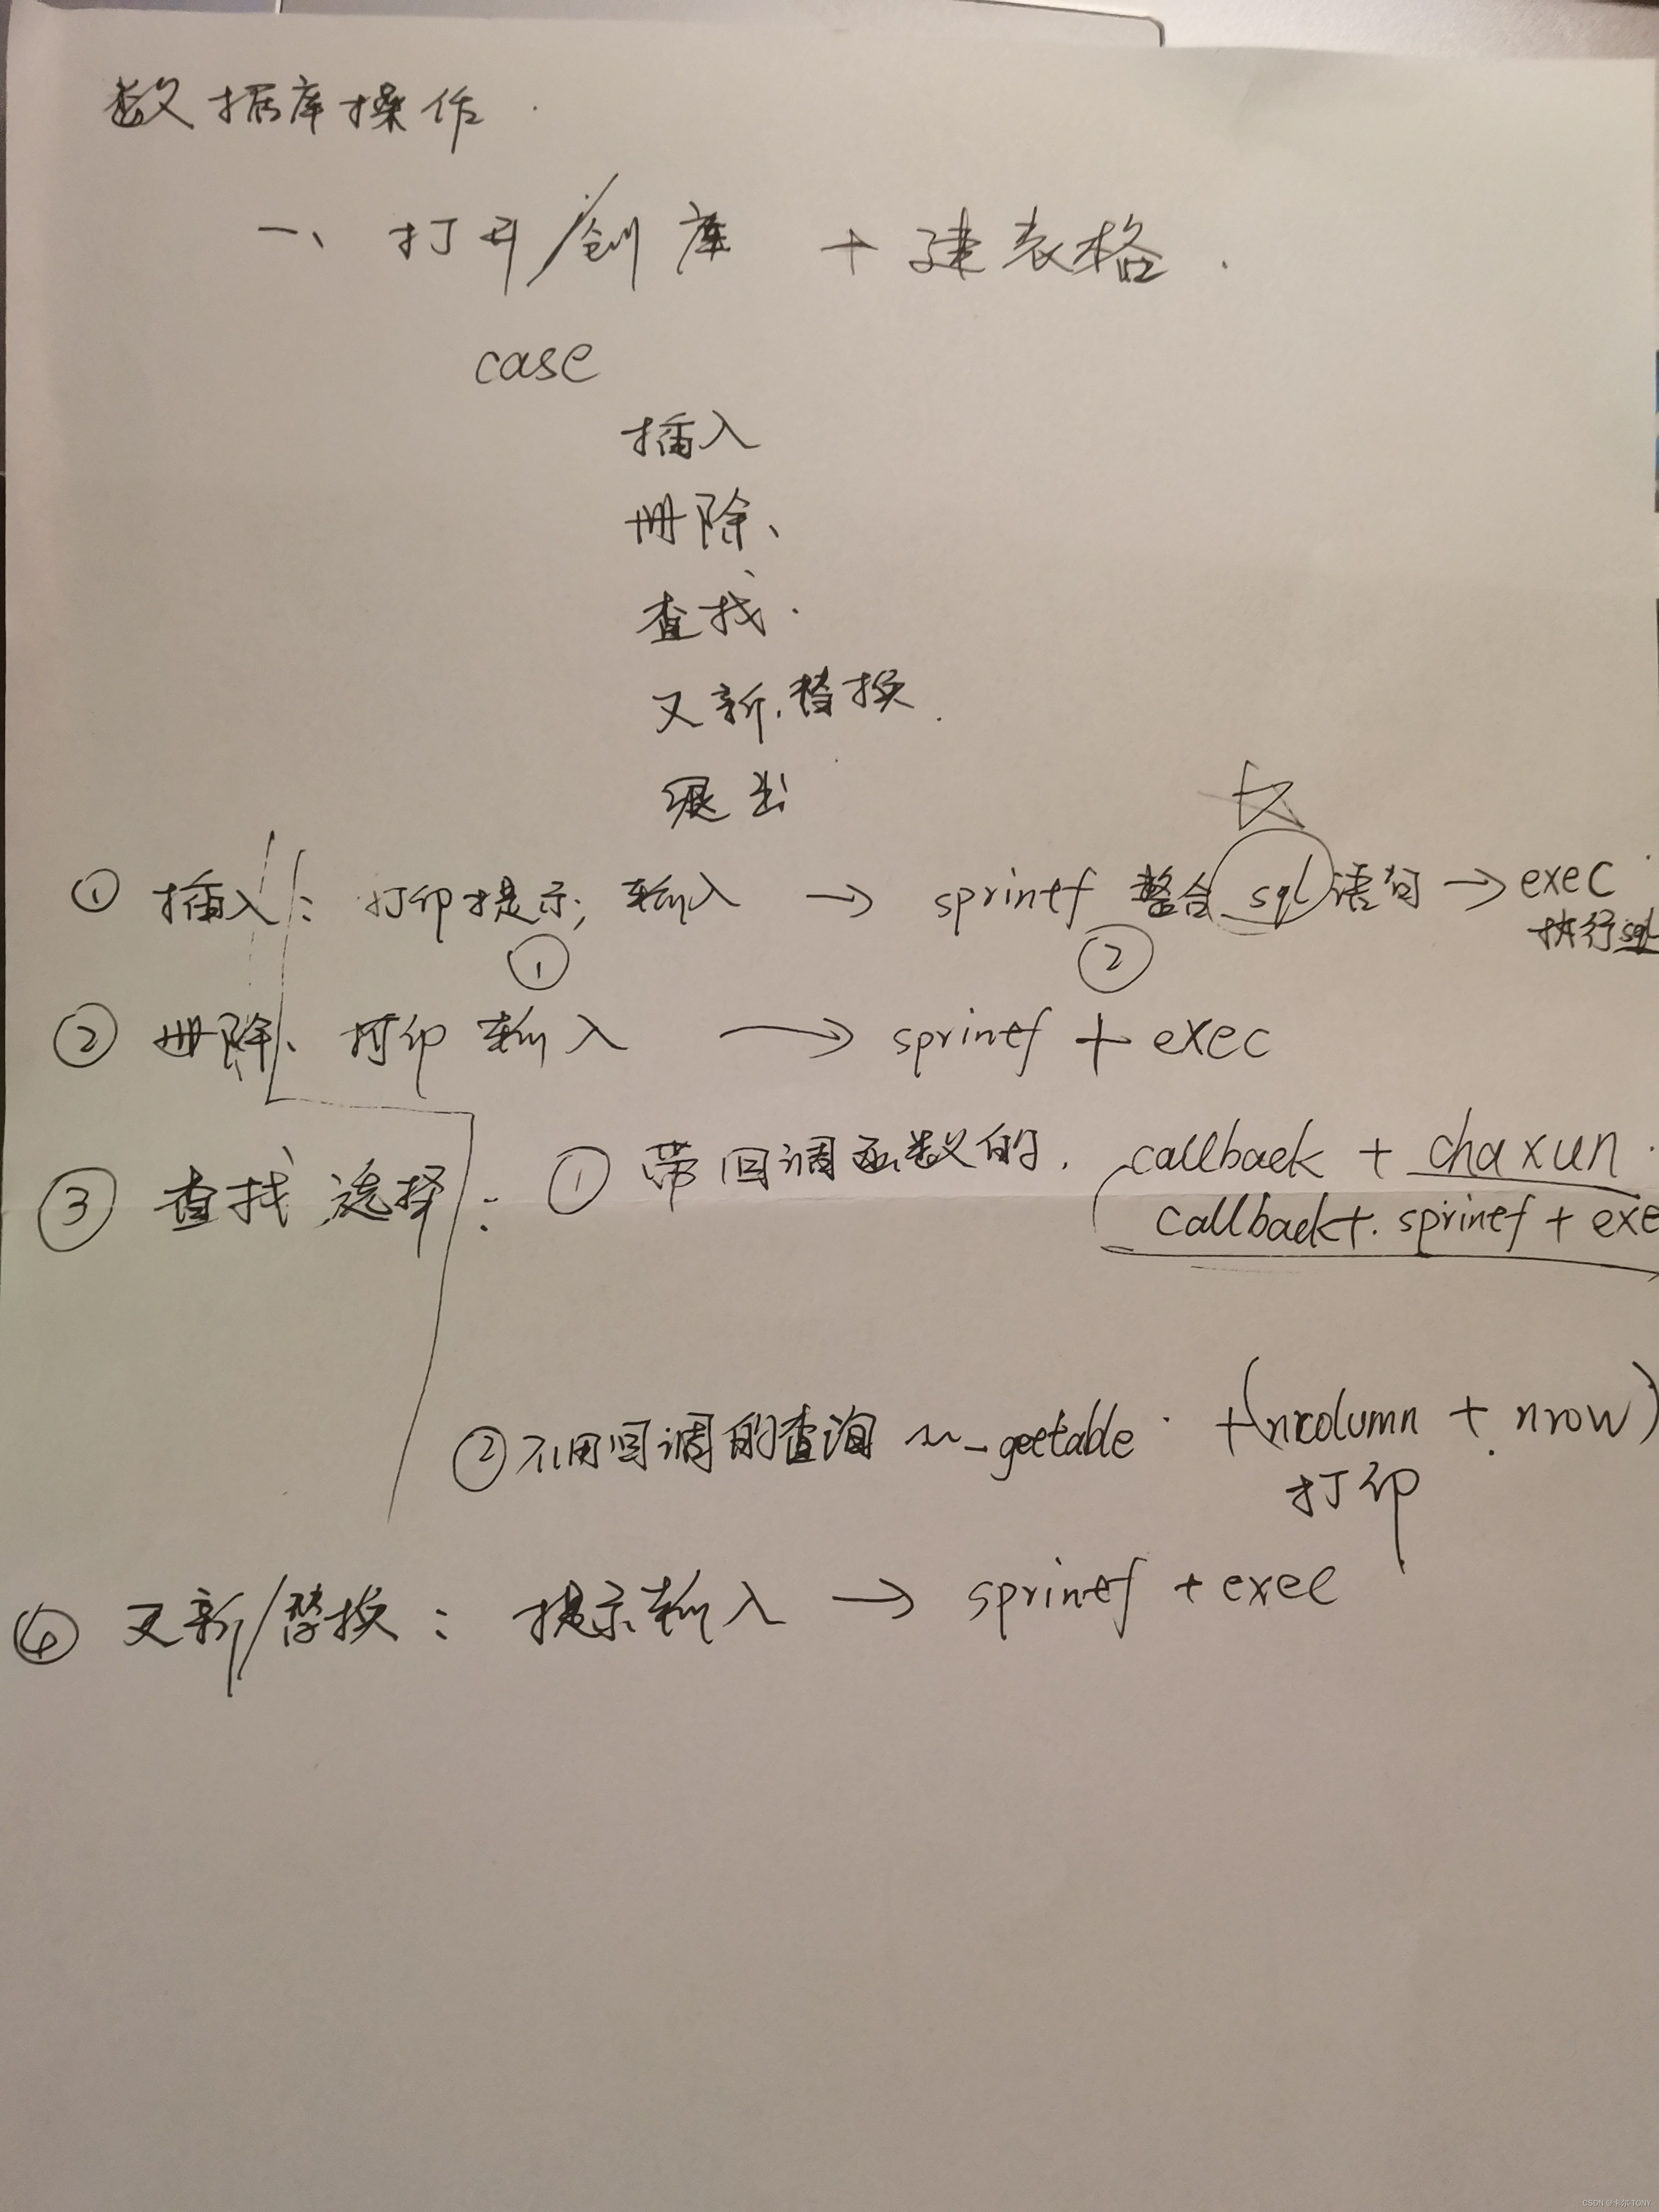 数据库操作.
一、打开/创库 + 建表格.
case
插入
册除、
查找.
又新.替换.
退出
① 插入: 打印提示; 输入 → sprintf 整合 sql 语句 → exec
执行sql
① ②
② 册除、打印 输入 → sprintf + exec
③ 查找、选择: ① 带回调函数的. callback + chaxun.
callback+. sprintf + exe
② 不用回调的查询 ~_geetable. +(ncolumn + nrow)
打印
④ 又新/替换: 提示输入 → sprintf + exec
CSDN @卡尔-TONY